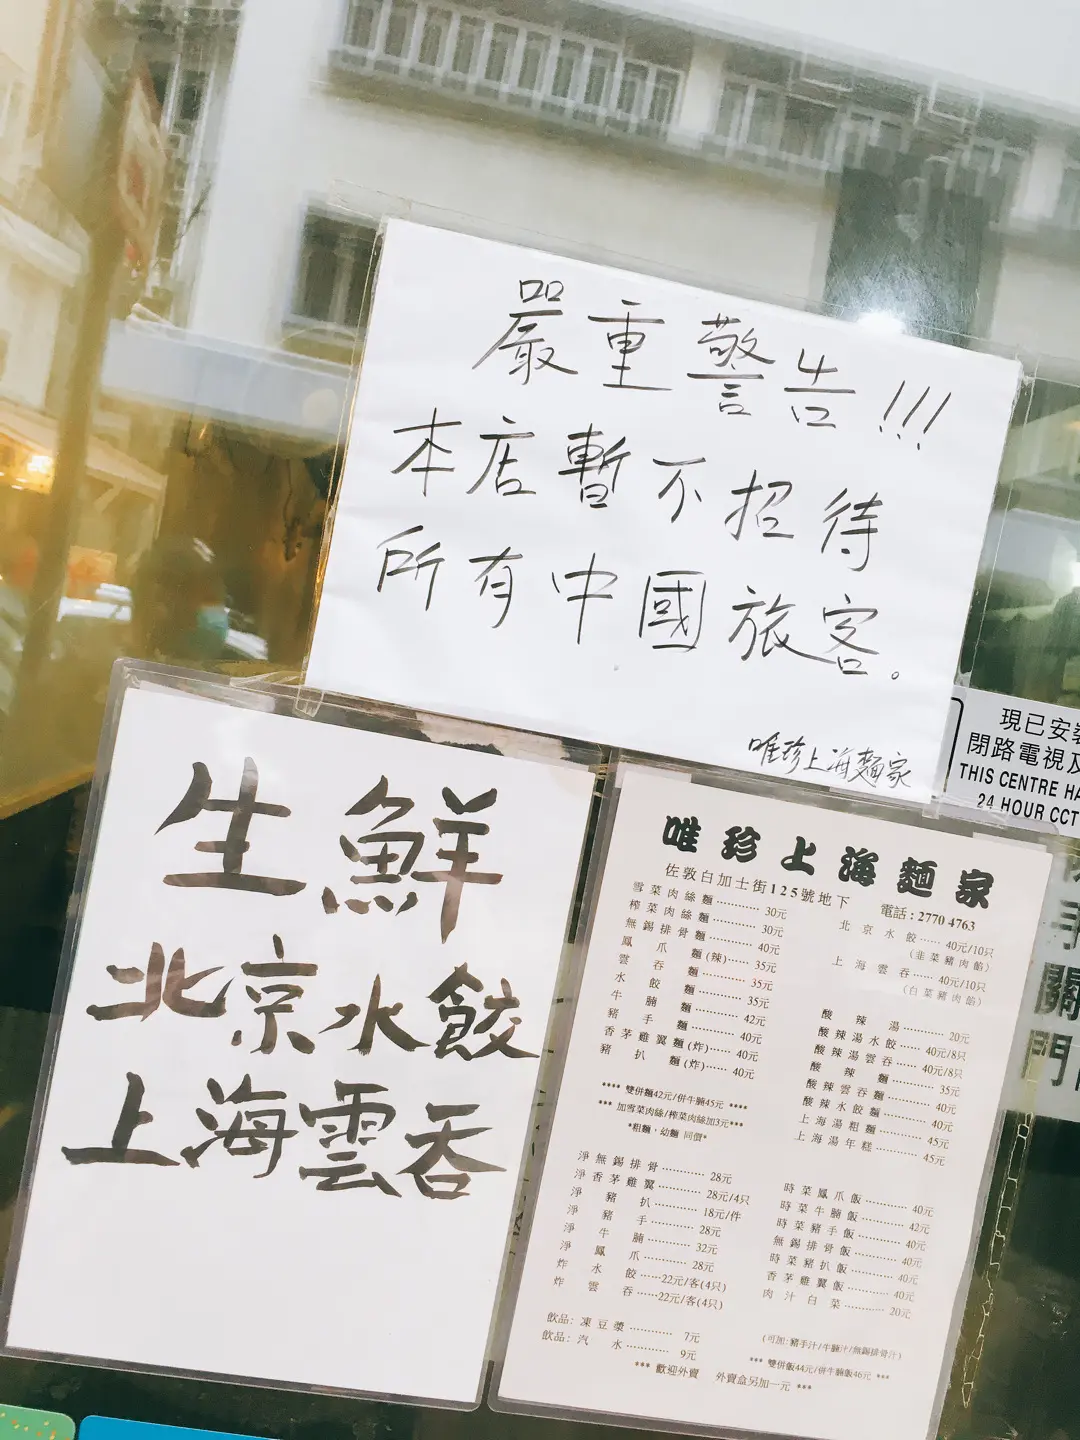 嚴重警告!!!
本店暫不招待
所有中國旅客。
唯珍上海麵家
現已安裝
閉路電視及
THIS CENTRE HA
24 HOUR CCT
手
關
門
生鮮
北京水餃
上海雲吞
唯珍上海麵家
佐敦白加士街125號地下
電話：2770 4763
雪菜肉絲麵 ............ 30元
榨菜肉絲麵 ............ 30元
無錫排骨麵 ............ 40元
鳳爪麵(辣) ...... 35元
雲吞麵 ............ 35元
水餃麵 ............ 35元
牛腩麵 ............ 42元
豬手麵 ............ 40元
香茅雞翼麵(炸) ...... 40元
豬扒麵(炸) ...... 40元
**** 雙併麵42元/併牛腩45元 ****
*** 加雪菜肉絲/榨菜肉絲加3元***
*粗麵·幼麵 同價*
淨無錫排骨 ............ 28元
淨香茅雞翼 ............ 28元/4只
淨豬扒 ............ 18元/件
淨豬手 ............ 28元
淨牛腩 ............ 32元
淨鳳爪 ............ 28元
炸水餃 ......22元/客(4只)
炸雲吞 ......22元/客(4只)
飲品：凍豆漿 ............ 7元
飲品：汽水 ............ 9元
北京水餃 ...... 40元/10只
(韭菜豬肉餡)
上海雲吞 ...... 40元/10只
(白菜豬肉餡)
酸辣湯 ............ 20元
酸辣湯水餃 ...... 40元/8只
酸辣湯雲吞 ...... 40元/8只
酸辣麵 ............ 35元
酸辣雲吞麵 ............ 40元
酸辣水餃麵 ............ 40元
上海湯粗麵 ............ 45元
上海湯年糕 ............ 45元
時菜鳳爪飯 ............ 40元
時菜牛腩飯 ............ 42元
時菜豬手飯 ............ 40元
無錫排骨飯 ............ 40元
時菜豬扒飯 ............ 40元
香茅雞翼飯 ............ 40元
肉汁白菜 ............ 20元
(可加：豬手汁/牛腩汁/無錫排骨汁)
*** 雙併飯44元/併牛腩飯46元 ***
*** 歡迎外賣 外賣盒另加一元 ***